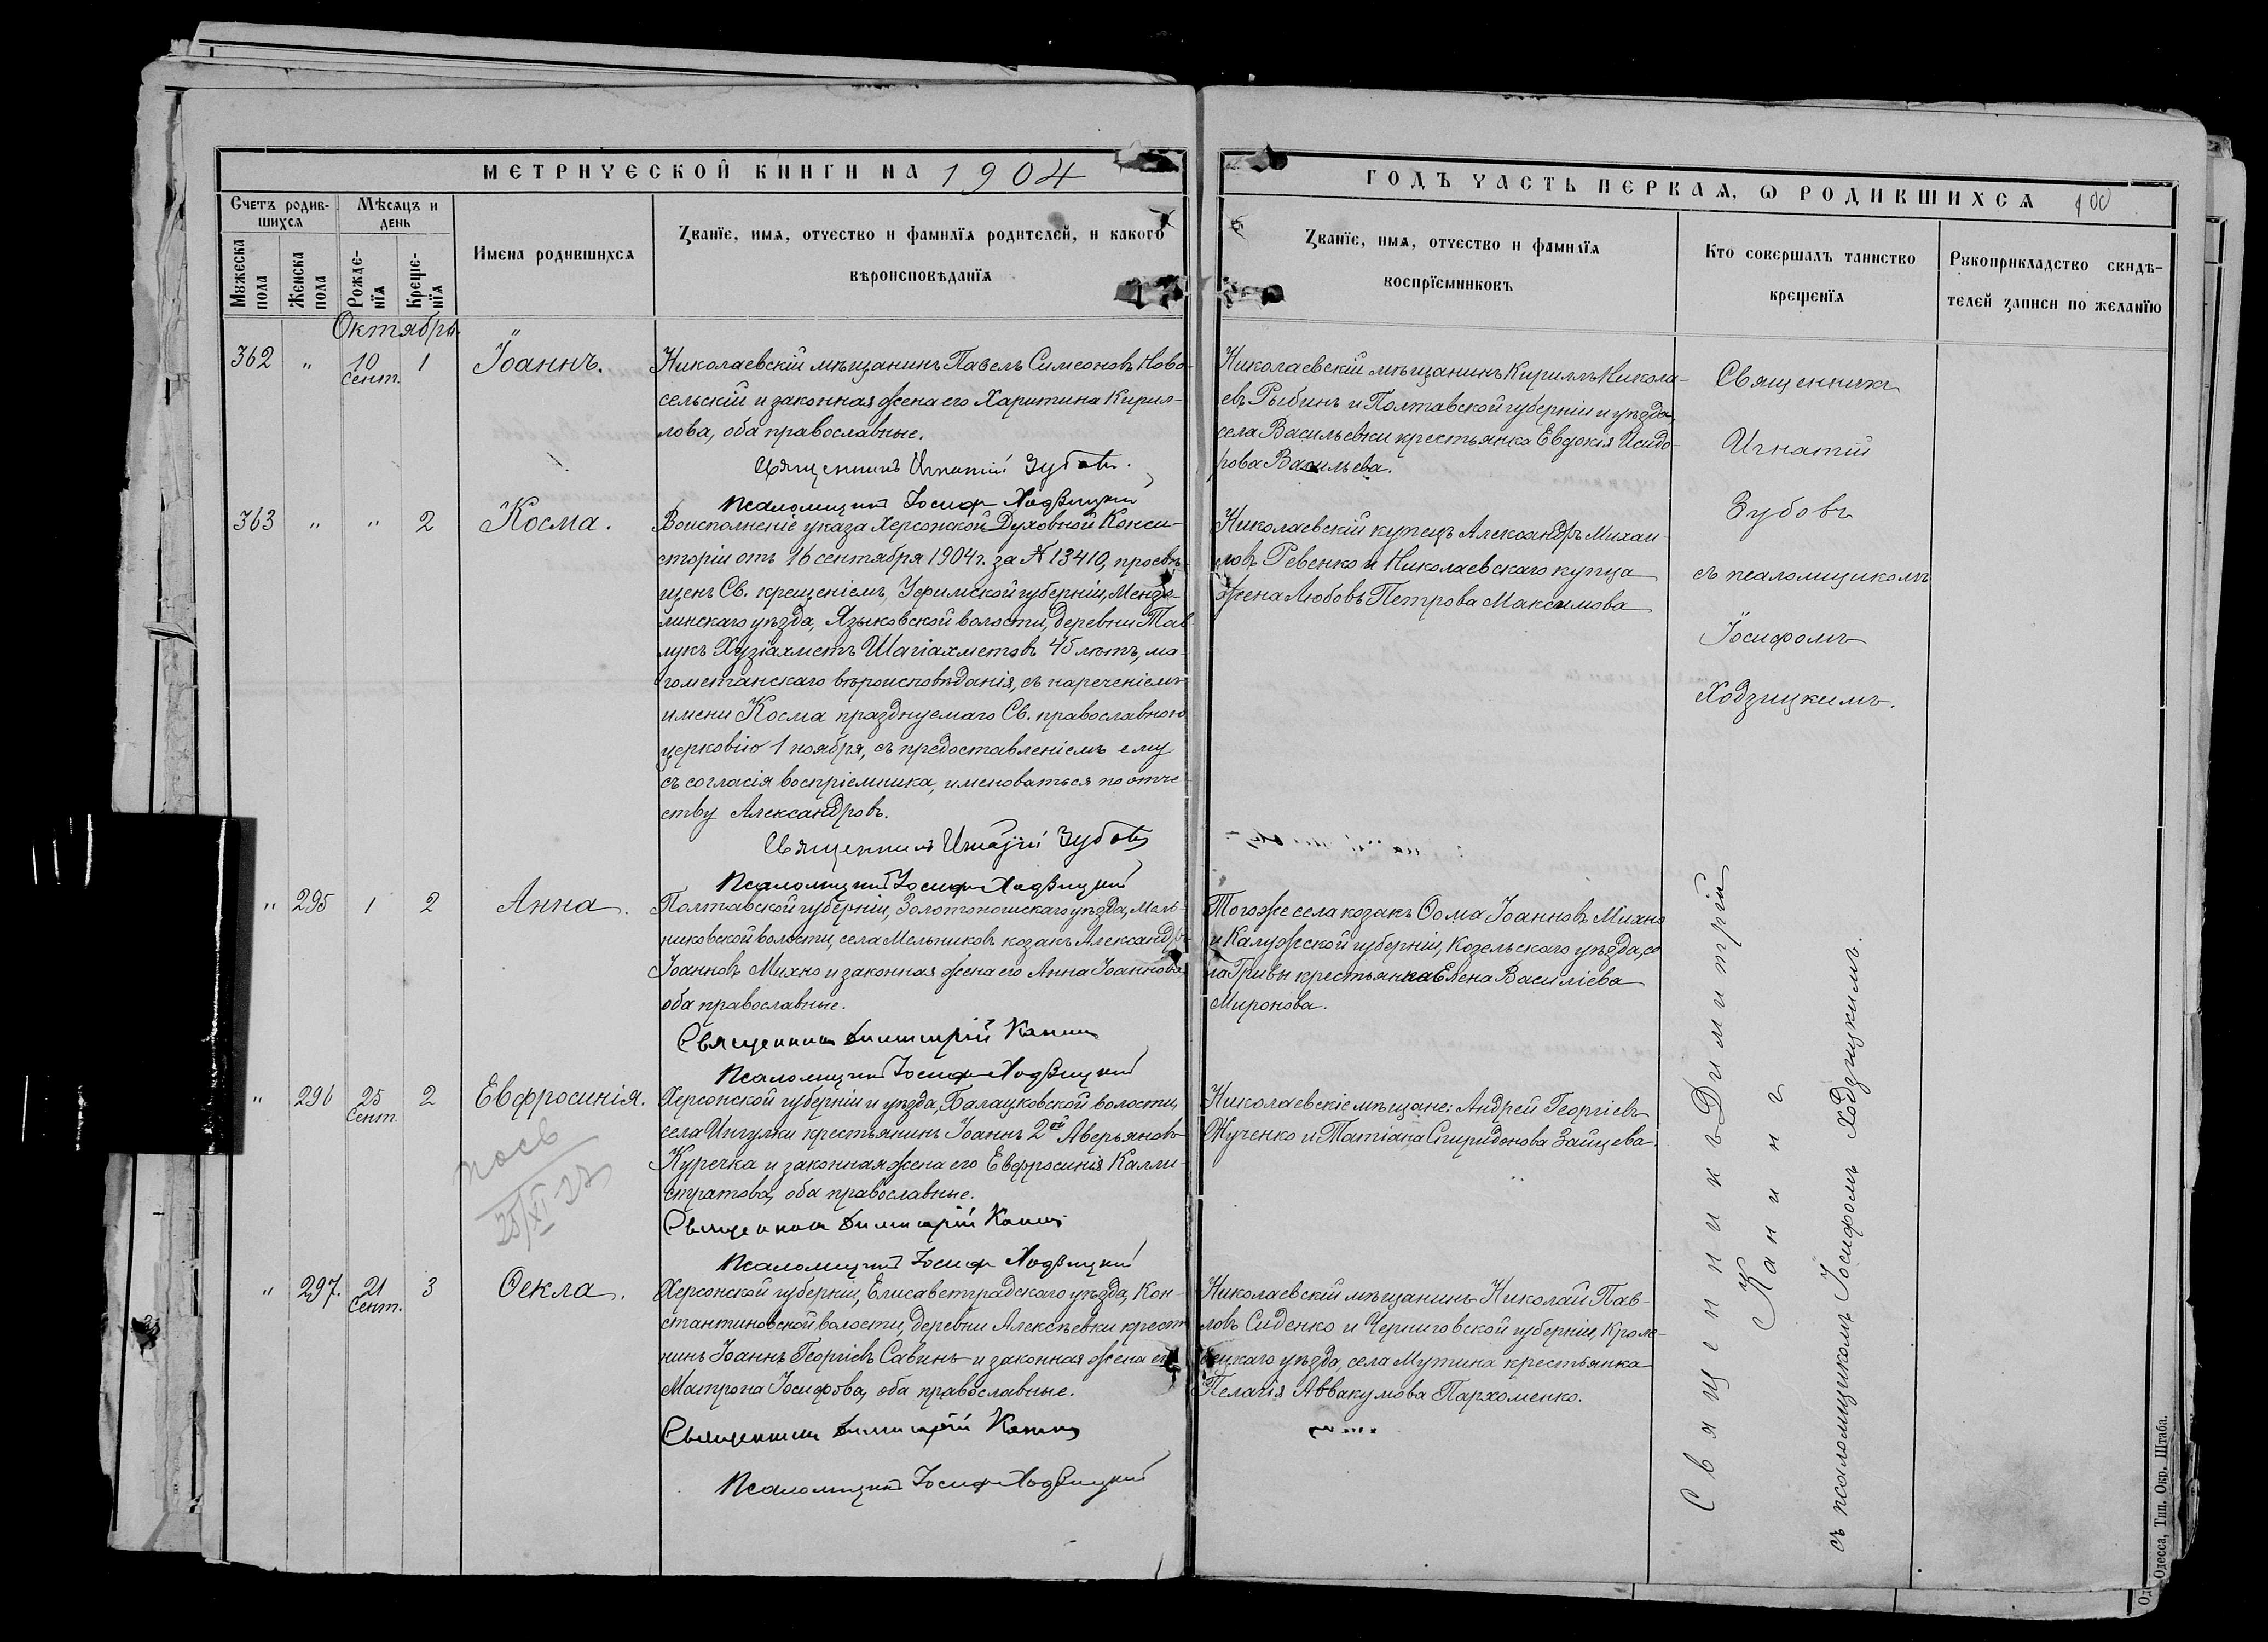 МЕТРИЧЕСКОЙ КНИГИ НА 1904
ГОДЪ ЧАСТЬ ПЕРВАЯ, Ѡ РОДИВШИХСЯ 100
Счетъ родив-
шихся
Мѣсяцъ и
день
Мужеска
пола
Женска
пола
Рожде-
нїя
Креще-
нїя
Имена родившихся
Званїе, имя, отчество и фамилїя родителей, и какого
вѣроисповѣданїя
Званїе, имя, отчество и фамилїя
воспрїемниковъ
Кто совершалъ таинство
крещенїя
Рукоприкладство свидѣ-
телей записи по желанїю
Октябрь
362 " 10 Сент. 1 Іоаннъ.
Николаевскій мѣщанинъ Павелъ Симеоновъ Ново-
сельскій и законная жена его Харитина Кирил-
лова, оба православные.
Священникъ Игнатій Зубовъ.
Псаломщикъ Іосифъ Ходзицкий
Николаевскій мѣщанинъ Кириллъ Никола-
евъ Рыбинъ и Полтавской губерніи и уѣзда,
села Васильевки крестьянка Евдокія Исидо-
рова Васильева.
363 " " 2 Косма.
Воисполненіе указа Херсонской Духовной Конси-
сторіи отъ 16 сентября 1904 г. за № 13410, просвѣ-
щенъ Св. крещеніемъ, Уфимской губерніи, Мензе-
линскаго уѣзда, Языковской волости, деревни Тав-
лукъ Хузіахметъ Шагіахметовъ 45 лѣтъ, ма-
гометанскаго вѣроисповѣданія, съ нареченіемъ
имени Косма празднуемаго Св. православною
церковію 1 ноября, съ предоставленіемъ ему
съ согласія воспріемника, именоваться по отче-
ству Александровъ.
Священникъ Игнатій Зубовъ
Псаломщикъ Іосифъ Ходзицкий
Николаевскій купецъ Александръ Михаи-
ловъ Ревенко и Николаевскаго купца
жена Любовь Петрова Максимова
Священникъ
Игнатій
Зубовъ
съ псаломщикомъ
Іосифомъ
Ходзицкимъ.
" 295 1 2 Анна.
Полтавской губерніи, Золотоношскаго уѣзда, Мель-
никовской волости, села Мельниковъ козакъ Александръ
Іоанновъ Михно и законная жена его Анна Іоаннова,
оба православные.
Священникъ Димитрій Канинг
Псаломщикъ Іосифъ Ходзицкий
Тогоже села козакъ Ѳома Іоанновъ Михно
и Калужской губерніи, Козельскаго уѣзда, се
ла Гривы крестьянка Елена Василіева
Миронова.
" 296 25 Сент. 2 Евфросинія.
25/XI 27
Херсонской губерніи и уѣзда, Балацковской волости,
села Ингулки крестьянинъ Іоаннъ 2ой Аверьяновъ
Куречка и законная жена его Евфросинія Калли-
стратова, оба православные.
Священникъ Димитрій Канинг
Псаломщикъ Іосифъ Ходзицкий
Николаевскіе мѣщане: Андрей Георгіевъ
Жученко и Татіана Спиридонова Зайцева.
" 297. 21 Сент. 3 Ѳекла.
Херсонской губерніи, Елисаветградскаго уѣзда, Кон-
стантиновской волости, деревни Алексѣевки крест
нинъ Іоаннъ Георгіевъ Савинъ и законная жена его
Матрона Іосифова, оба православные.
Священникъ Димитрій Канинг
Псаломщикъ Іосифъ Ходзицкий
Николаевскій мѣщанинъ Николай Пав-
ловъ Сиденко и Черниговской губерніи, Кроле-
вецкаго уѣзда, села Мутина крестьянка
Пелагія Аввакумова Пархоменко.
Священникъ Димитрій
Канинг
съ псаломщикомъ Іосифомъ Ходзицкимъ.
Одесса, Тип. Окр. Штаба.